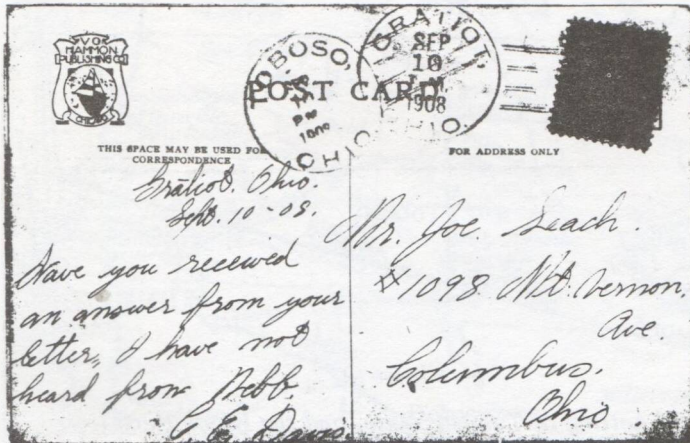 V.O.
HAMMON
PUBLISHING CO
CHICAGO
POST CARD
TOBOSO,
OHIO
GRATIOT,
SEP
10
1908
OHIO
THIS SPACE MAY BE USED FOR
CORRESPONDENCE
FOR ADDRESS ONLY
Gratiot. Ohio.
Sept. 10-08.
Have you received
an answer from your
letter, I have not
heard from Webb.
C. E. Davis
Mr. Joe. Leach.
#1098 Mt. Vernon.
Ave.
Columbus.
Ohio